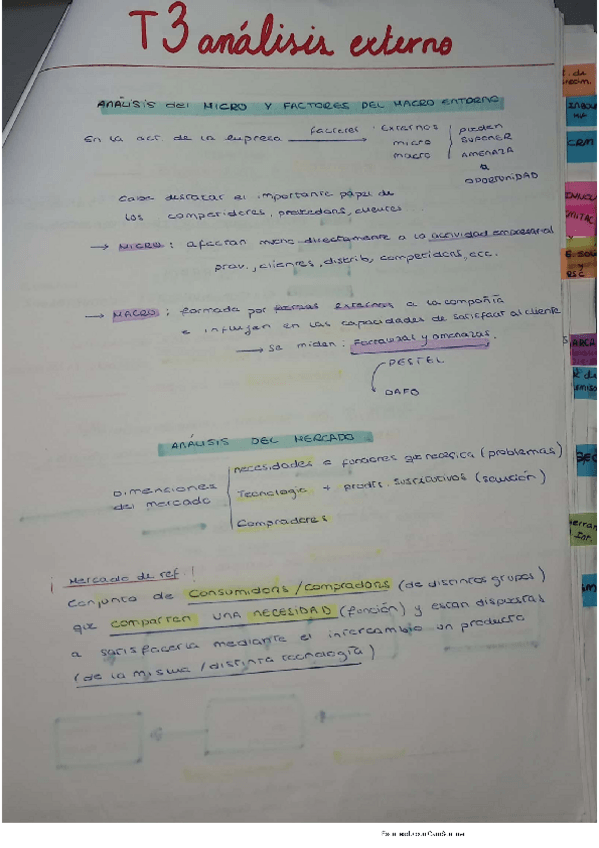 T3 análisis externo
ANÁLISIS del MICRO Y FACTORES DEL MACRO ENTORNO
En la act. de la empresa → factores externos micro macro pueden SUPONER AMENAZA o OPORTUNIDAD
Cabe destacar el importante papel de
los competidores, proveedores, clientes
→ MICRO: afectan mucho directamente a la actividad empresarial
prov., clientes, distrib, competidores, ecc.
→ MACRO: formada por fuerzas externas a la compañía
e influyen en las capacidades de satisfacer al cliente
→ se miden: Fortalezas y amenazas.
PESTEL
DAFO
ANÁLISIS DEL MERCADO
Dimenciones
del mercado
necesidades o funciones que necesita (problemas)
Tecnologia + prodts. sustitutivos (solución)
Compradores
¡Mercado de ref.!
Conjunto de consumidores/compradores (de distintos grupos)
que comparten UNA NECESIDAD (función) y están dispuestos
a satisfacerla mediante el intercambio un producto
(de la misma/distinta tecnología)
CRM